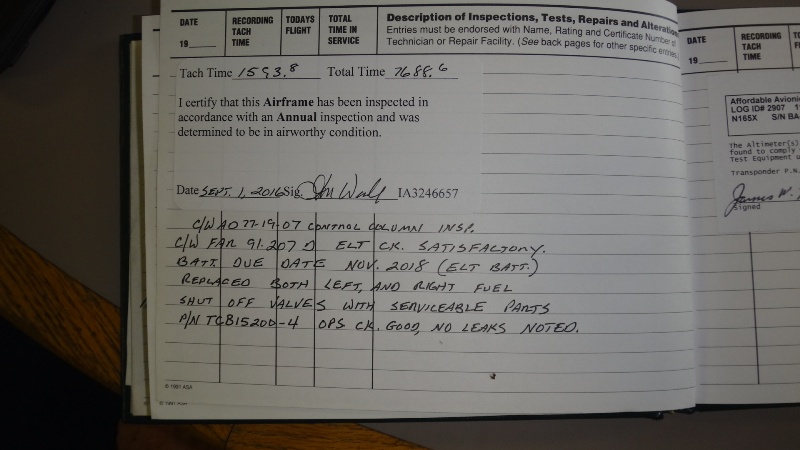 DATE
19
RECORDING
TACH
TIME
TODAYS
FLIGHT
TOTAL
TIME IN
SERVICE
Description of Inspections, Tests, Repairs and Alteration
Entries must be endorsed with Name, Rating and Certificate Number of
Technician or Repair Facility. (See back pages for other specific entries.)
Tach Time 1593.8 Total Time 7688.6
I certify that this Airframe has been inspected in
accordance with an Annual inspection and was
determined to be in airworthy condition.
Date SEPT. 1, 2016 Sig. IA3246657
C/W AD 77-19-07 CONTROL COLUMN INSP.
C/W FAR 91.207 D ELT CK. SATISFACTORY.
BATT. DUE DATE NOV. 2018 (ELT BATT.)
REPLACED BOTH LEFT, AND RIGHT FUEL
SHUT OFF VALVES WITH SERVICEABLE PARTS
P/N TCB1520D-4 OPS CK. GOOD, NO LEAKS NOTED.
© 1981 ASA
DATE
19
RECORDING
TACH
TIME
Affordable Avioni
LOG ID# 2907
N165X S/N BA
The Altimeter(s)
found to comply
Test Equipment u
Transponder P.N.
James W.
Signed